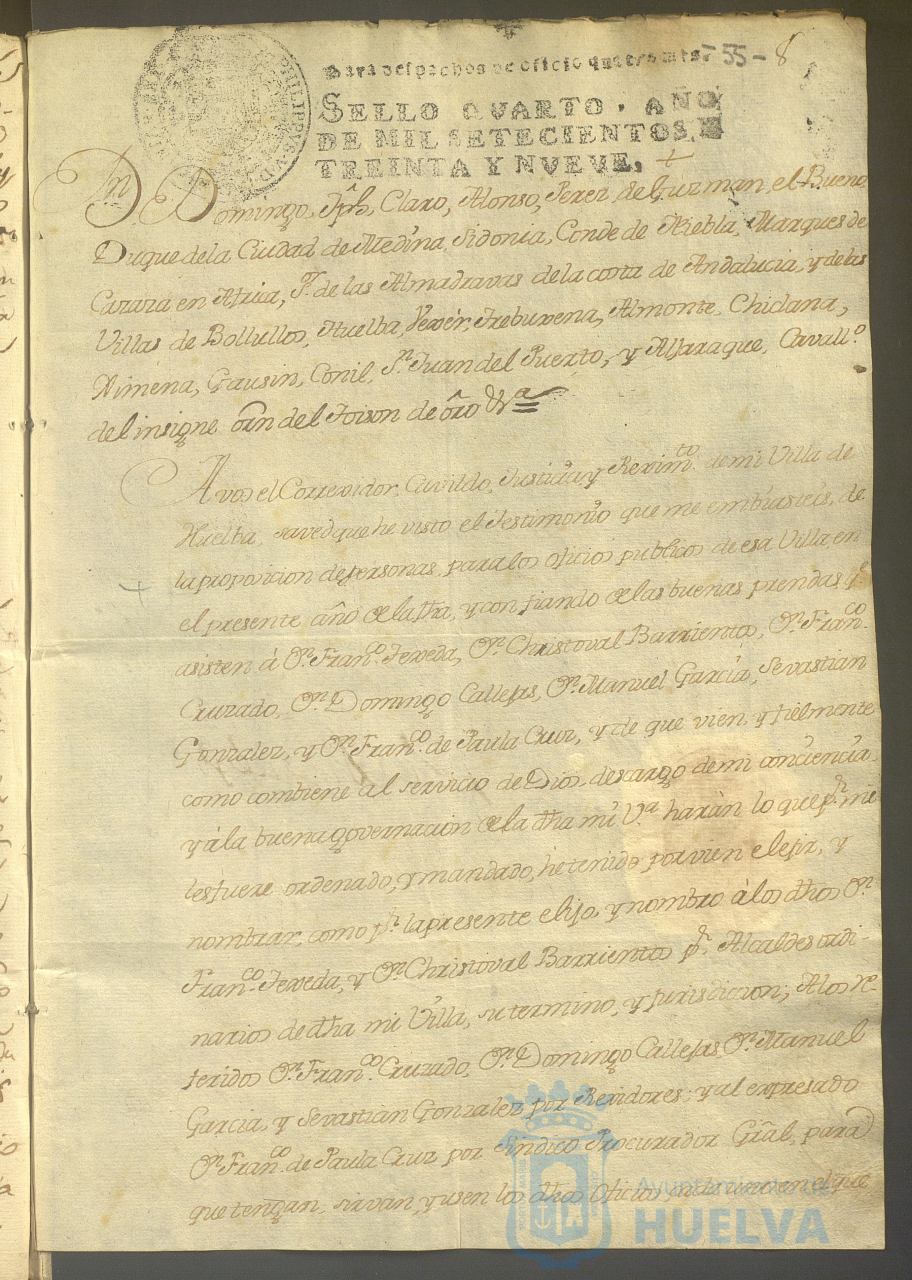 Para despachos de oficio quatro mrs. 55 - 8
PHILIPPUS V D
SELLO QVARTO, AÑO
DE MIL SETECIENTOS, Y
TREINTA Y NVEVE,
Dn Domingo, Jph, Claro, Alonso, Perez de Guzman, el Bueno
Duque de la Ciudad de Medina Sidonia, Conde de Niebla, Marques de
Cazaza en Africa, Sr. de las Almadravas de la costa de Andalucia, y de las
Villas de Bollullos, Huelba, Vexér, Trebuxena, Almonte, Chiclana,
Ximena, Gausin, Conil, Sn. Juan del Puerto, y Aljaraque, Cavallo.
del insigne orn del Toison de oro &a
A vos el Correxidor, Cavildo, Justicia, y Reximto. de mi Villa de
Huelba, saved que he visto el Testimonio que me embiasteis, de
la proposicion de personas, para los oficios publicos de esa Villa, en
el presente año de la fha, y confiando de las buenas prendas q
asisten á Dn. Franco. Texeda, Dn. Christoval Barrientos, Dn. Franco.
Cruzado, Dn. Domingo Callejas, Dn. Manuel García, Sevastian
Gonzalez, y Dn. Franco. de Paula Cruz, y de que vien, y fielmente
como combiene al servicio de Dios, descargo de mi conciencia,
y á la buena governacion de la dha mi Va. harán lo que pr. me
les fuere ordenado, y mandado, he tenido por vien elejir, y
nombrar, como pr. la presente elijo, y nombro á los dhos Dn.
Franco. Texeda, y Dn. Christoval Barrientos pr. Alcaldes ordi-
narios de dha mi Villa, su termino, y jurisdicion; A los re-
feridos Dn. Franco. Cruzado, Dn. Domingo Callejas, Dn. Manuel
Garcia, y Sevastian Gonzalez por Rexidores; y al expresado
Dn. Franco. de Paula Cruz por Sindico Procurador Gral, para
que tengan, sirvan, y usen los dhos Oficios, cada uno en el que
Ayuntamiento de
HUELVA